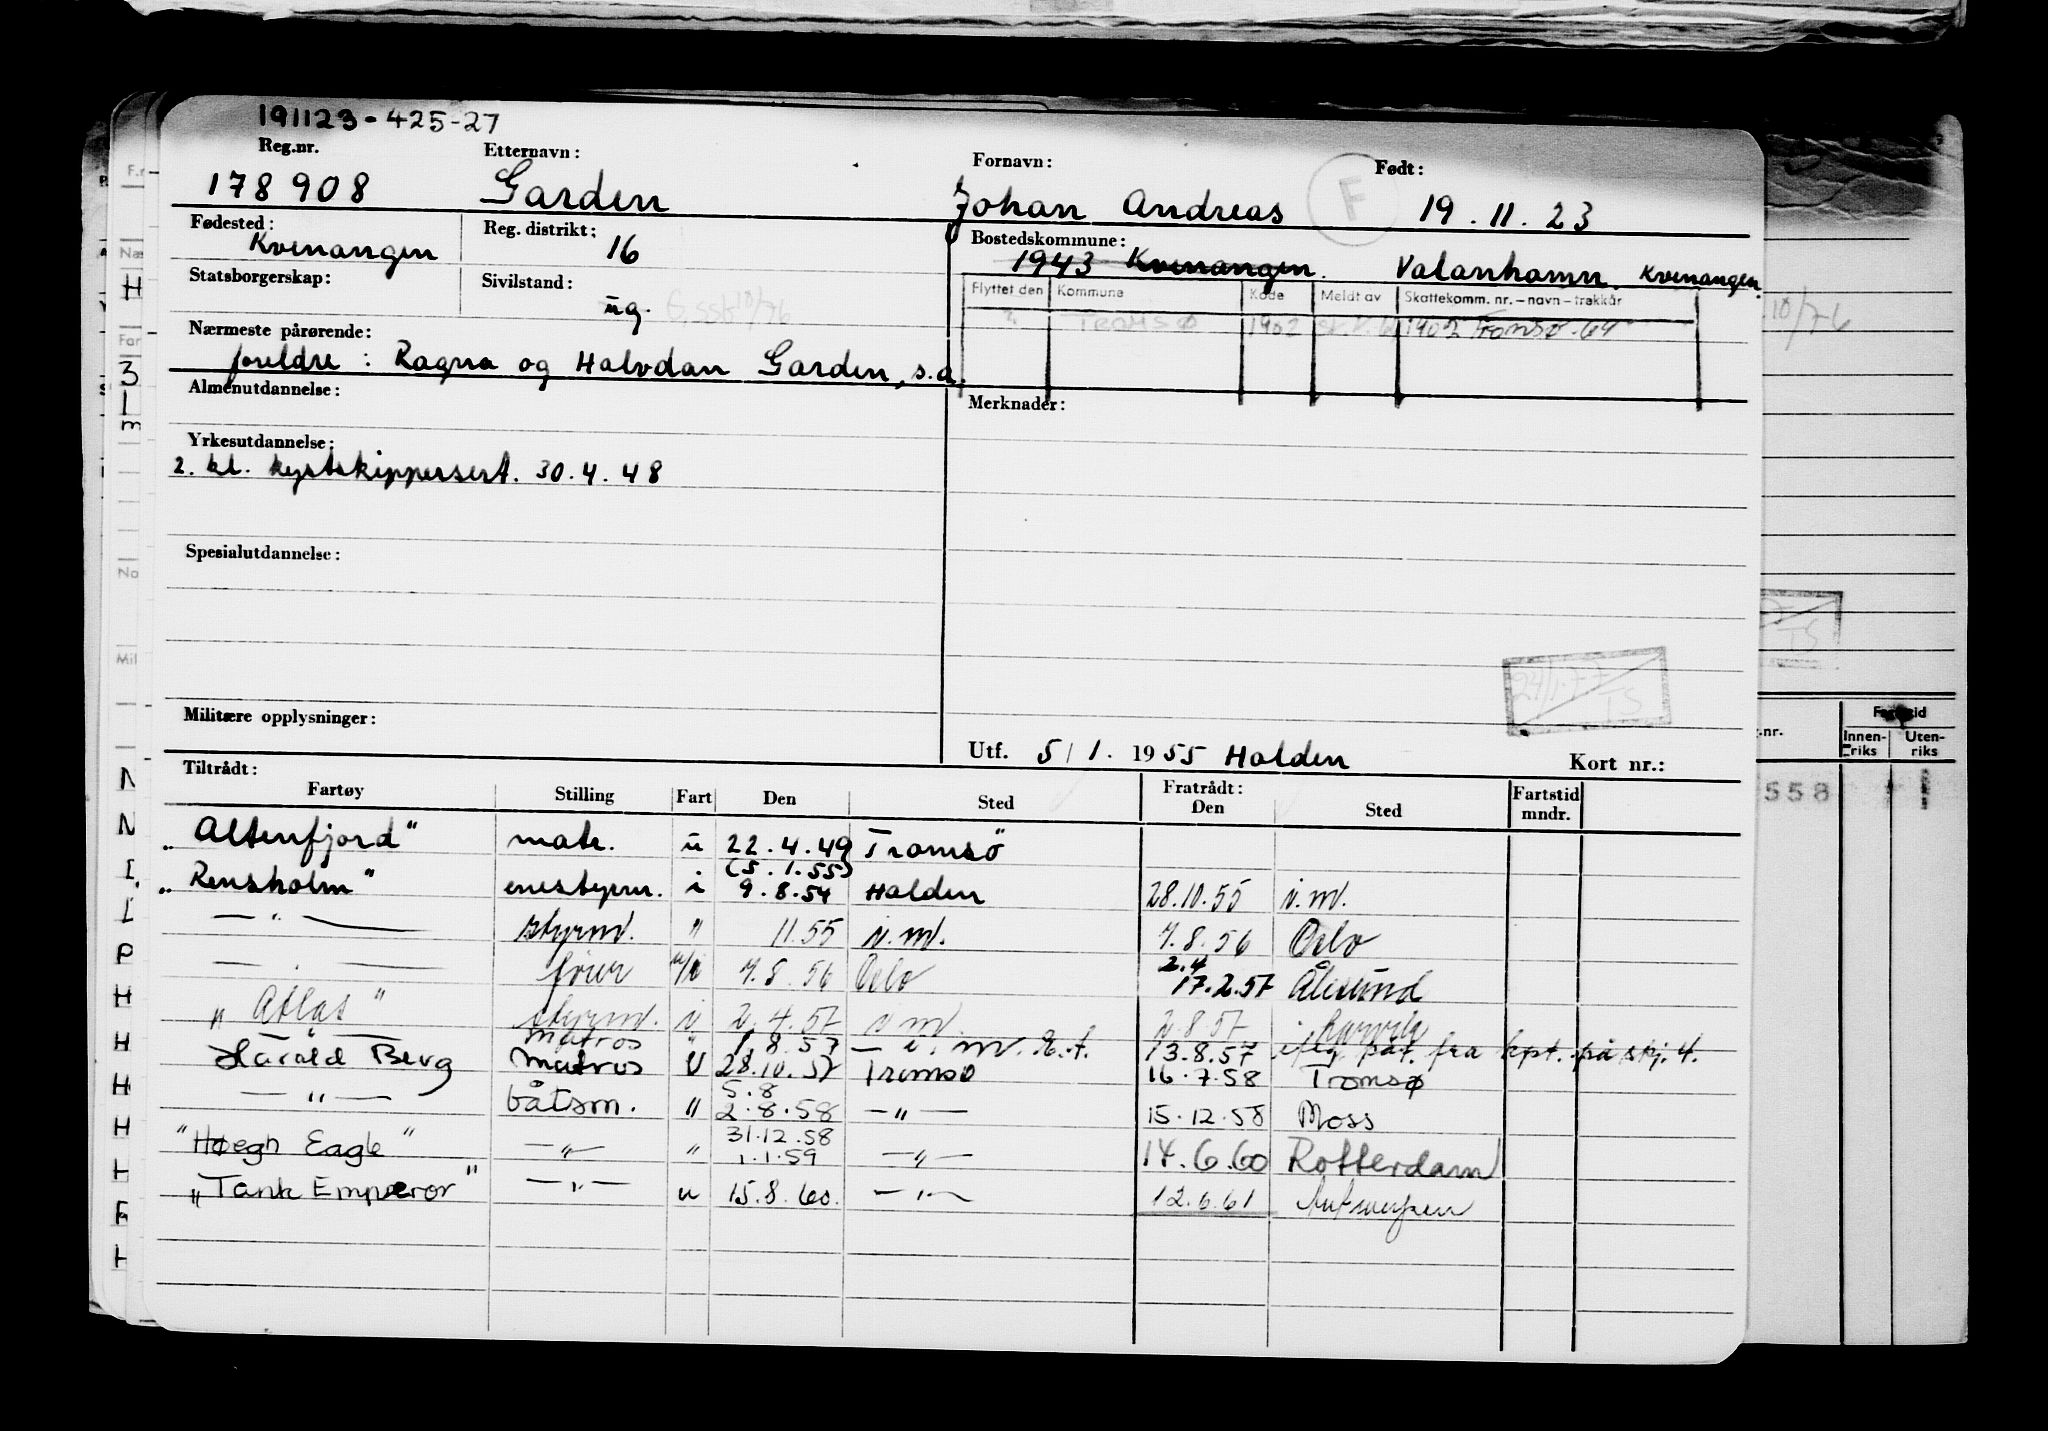 191123-425-27
Reg.nr. Etternavn: Fornavn: Født:
178908 Garden Johan Andreas F 19.11.23
Fødested: Reg. distrikt: Bostedskommune:
Kvenangen 16 1943 Kvenangen. Valanhamn. Kvenangen.
Statsborgerskap: Sivilstand: Flyttet den Kommune Kode Meldt av Skattekomm. nr. – navn – trekkår
ug. Tromsø 1902 1902 Tromsø - 64
Nærmeste pårørende:
foreldre: Ragna og Halvdan Garden, s.a.
Almenutdannelse: Merknader:
Yrkesutdannelse:
2. kl. kystskippersert. 30.4.48
Spesialutdannelse:
24/1.77 TS
Militære opplysninger:
Utf. 5/1. 1955 Halden Kort nr.:
Tiltrådt: Fratrådt:
Fartøy Stilling Fart Den Sted Den Sted Fartstid mndr.
"Altenfjord" matr. u 22.4.49 Tromsö
(5.1.55)
"Rensholm" enestyrm. i 9.8.54 Halden 28.10.55 i.m.
— " — styrm. " 11.55 i.m. 7.8.56 Oslo
— " — fører u/i 7.8.56 Oslo 2.4 17.2.57 Ålesund
"Atlas" styrm. i 2.4.57 i.m. 2.8.57 Larvik
— matros " 1.8.57 — i.m. 13.8.57 iflg påt. fra kpt. på skj. 4.
Harald Berg Matros U 28.10.57 Tromsø 16.7.58 Tromsø
5.8
— " — båtsm. " 2.8.58 — " — 15.12.58 Moss
31.12.58
"Høegh Eagle" — " — " 1.1.59 — " — 14.6.60 Rotterdam
"Tank Emperor" — " — u 15.8.60. — " — 12.6.61 Antwerpen
10/76
TS
Innen-riks Uten-riks
558